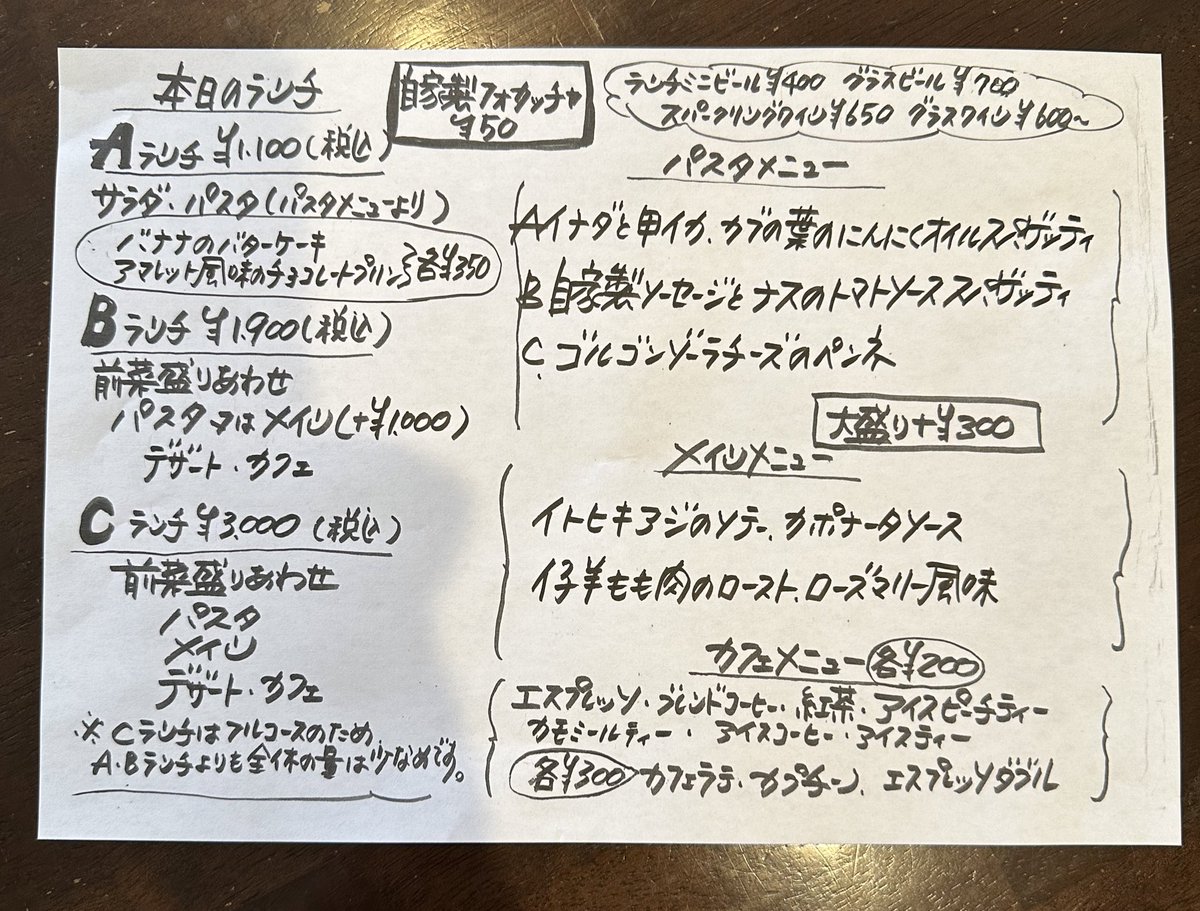 本日のランチ
自家製フォカッチャ
¥50
ランチミニビール¥400 グラスビール¥700
スパークリングワイン¥650 グラスワイン¥600~
Aランチ ¥1,100(税込)
サラダ・パスタ(パスタメニューより)
バナナのバターケーキ
アマレット風味のチョコレートプリン}各¥350
Bランチ ¥1,900(税込)
前菜盛りあわせ
パスタ又はメイン(+¥1,000)
デザート・カフェ
Cランチ ¥3,000(税込)
前菜盛りあわせ
パスタ
メイン
デザート・カフェ
※Cランチはフルコースのため
A・Bランチよりも全体の量は少なめです。
パスタメニュー
Aイナダと甲イカ、カブの葉のにんにくオイルスパゲッティ
B自家製ソーセージとナスのトマトソーススパゲッティ
C、ゴルゴンゾーラチーズのペンネ
大盛り+¥300
メインメニュー
イトヒキアジのソテー、カポナータソース
仔羊もも肉のロースト、ローズマリー風味
カフェメニュー 各¥200
エスプレッソ・ブレンドコーヒー・紅茶・アイスピーチティー
カモミールティー・アイスコーヒー・アイスティー
各¥300 カフェラテ・カプチーノ、エスプレッソダブル